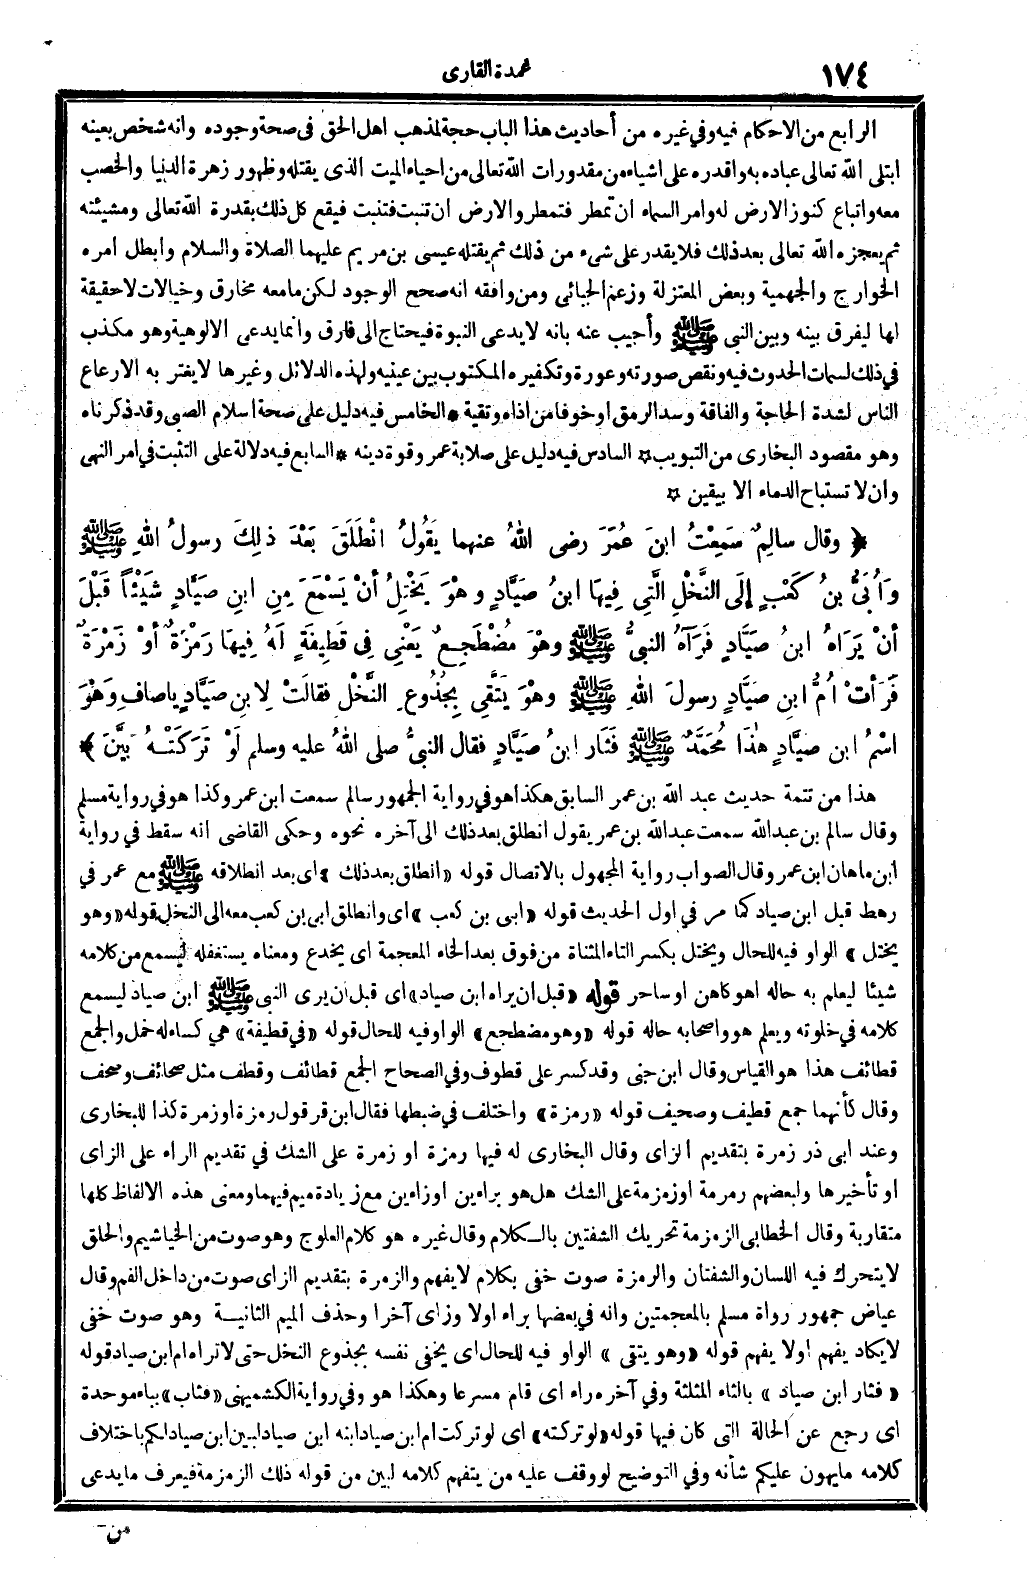 ١٧٤
عمدة القارى
الرابع من الاحكام فيه وفي غيره من أحاديث هذا الباب حجة لمذهب اهل الحق فى صحة وجوده وانه شخص بعينه
ابتلى الله تعالى عباده به واقدره على اشياء من مقدورات الله تعالى من احياء الميت الذى يقتله وظهور زهرة الدنيا والخصب
معه واتباع كنوز الارض له وامر السماء ان تمطر فتمطر والارض ان تنبت فتنبت فيقع كل ذلك بقدرة الله تعالى ومشيئته
ثم يعجزه الله تعالى بعد ذلك فلا يقدر على شىء من ذلك ثم يقتله عيسى بن مريم عليهما الصلاة والسلام وابطل امره
الخوارج والجهمية وبعض المعتزلة وزعم الجبائى ومن وافقه انه صحح الوجود لكن مامعه مخارق وخيالات لاحقيقة
لها ليفرق بينه وبين النبى ﷺ وأجيب عنه بانه لايدعى النبوة فيحتاج الى فارق وانما يدعى الالوهية وهو مكذب
فى ذلك لسمات الحدوث فيه ونقص صورته وعورة وتكفيره المكتوب بين عينيه ولهذه الدلائل وغيرها لا يغتر به الارعاع
الناس لشدة الحاجة والفاقة وسد الرمق او خوفا من اذاه وتقية * الخامس فيه دليل على صحة اسلام الصبى وقد ذكرناه
وهو مقصود البخارى من التبويب * السادس فيه دليل على صلابة عمر وقوة دينه * السابع فيه دلالة على التثبت فى امر النهى
وان لا تستباح الدماء الا بيقين *
﴿ وقال سالِمٌ سَمِعْتُ ابنَ عُمَرَ رضى اللهُ عنهما يَقُولُ انْطَلَقَ بَعْدَ ذٰلِكَ رسولُ اللهِ ﷺ
وَأُبَىُّ بنُ كَعْبٍ إلَى النَّخْلِ الَّتِى فِيهَا ابنُ صَيَّادٍ وهْوَ يَخْتِلُ أنْ يَسْمَعَ مِنِ ابنِ صيَّادٍ شَيْئاً قَبْلَ
أنْ يَرَاهُ ابنُ صيَّادٍ فَرَآهُ النبىُّ ﷺ وهْوَ مُضْطَجِعٌ يَعْنِى فِى قَطِيفَةٍ لَهُ فِيهَا رَمْزَةٌ أوْ زَمْرَةٌ
فَرَأتْ أُمُّ ابنِ صيَّادٍ رسولَ اللهِ ﷺ وهْوَ يَتَّقِى بِجُذُوعِ النَّخْلِ فقالَتْ لِابنِ صَيَّادٍ ياصافِ وَهْوَ
اسْمُ ابن صيَّادٍ هٰذَا مُحَمَّدٌ ﷺ فَثَار ابنُ صَيَّادٍ فقال النبىُّ صلى اللهُ عليه وسلم لَوْ تَرَكَتْهُ بَيَّنَ ﴾
هذا من تتمة حديث عبد الله بن عمر السابق هكذا هو في رواية الجمهور سالم سمعت ابن عمر وكذا هو في رواية مسلم
وقال سالم بن عبدالله سمعت عبدالله بن عمر يقول انطلق بعد ذلك الى آخره نحوه وحكى القاضى انه سقط في رواية
ابن ماهان ابن عمر وقال الصواب رواية المجهول بالاتصال قوله «انطلق بعد ذلك» اى بعد انطلاقه ﷺ مع عمر في
رهط قبل ابن صياد كما مر في اول الحديث قوله «ابى بن كعب» اى وانطلق ابى بن كعب معه الى النخل قوله «وهو
يختل» الواو فيه للحال ويختل بكسر التاء المثناة من فوق بعد الخاء المعجمة اى يخدع ومعناه يستغفله ليسمع من كلامه
شيئا ليعلم به حاله اهو كاهن او ساحر قوله «قبل ان يراه ابن صياد» اى قبل ان يرى النبى ﷺ ابن صياد ليسمع
كلامه في خلوته ويعلم هو واصحابه حاله قوله «وهو مضطجع» الواو فيه للحال قوله «في قطيفة» هي كساء له خمل والجمع
قطائف هذا هو القياس وقال ابن جنى وقد كسر على قطوف وفي الصحاح الجمع قطائف وقطف مثل صحائف وصحف
وقال كأنهما جمع قطيف وصحيف قوله «رمزة» واختلف في ضبطها فقال ابن قرقول رمزة او زمرة كذا للبخارى
وعند ابى ذر زمرة بتقديم الزاى وقال البخارى له فيها رمزة او زمرة على الشك في تقديم الراء على الزاى
او تأخيرها ولبعضهم رمرمة او زمزمة على الشك هل هو براءين او زاءين مع زيادة ميم فيهما ومعنى هذه الالفاظ كلها
متقاربة وقال الخطابى الزمزمة تحريك الشفتين بالكلام وقال غيره هو كلام العلوج وهو صوت من الخياشيم والحلق
لايتحرك فيه اللسان والشفتان والرمزة صوت خفى بكلام لايفهم والزمرة بتقديم الزاى صوت من داخل الفم وقال
عياض جمهور رواة مسلم بالمعجمتين وانه في بعضها براء اولا وزاى آخرا وحذف الميم الثانية وهو صوت خفى
لايكاد يفهم اولا يفهم قوله «وهو يتقى» الواو فيه للحال اى يخفى نفسه بجذوع النخل حتى لاتراه ام ابن صياد قوله
«فثار ابن صياد» بالثاء المثلثة وفي آخره راء اى قام مسرعا وهكذا هو وفي رواية الكشميهنى «فثاب» بباء موحدة
اى رجع عن الحالة التى كان فيها قوله «لو تركته» اى لو تركت ام ابن صياد ابنه ابن صياد لبين ابن صياد لكم باختلاف
كلامه مايهون عليكم شأنه وفي التوضيح لو وقف عليه من يتفهم كلامه لبين من قوله ذلك الزمزمة فيعرف مايدعى
من